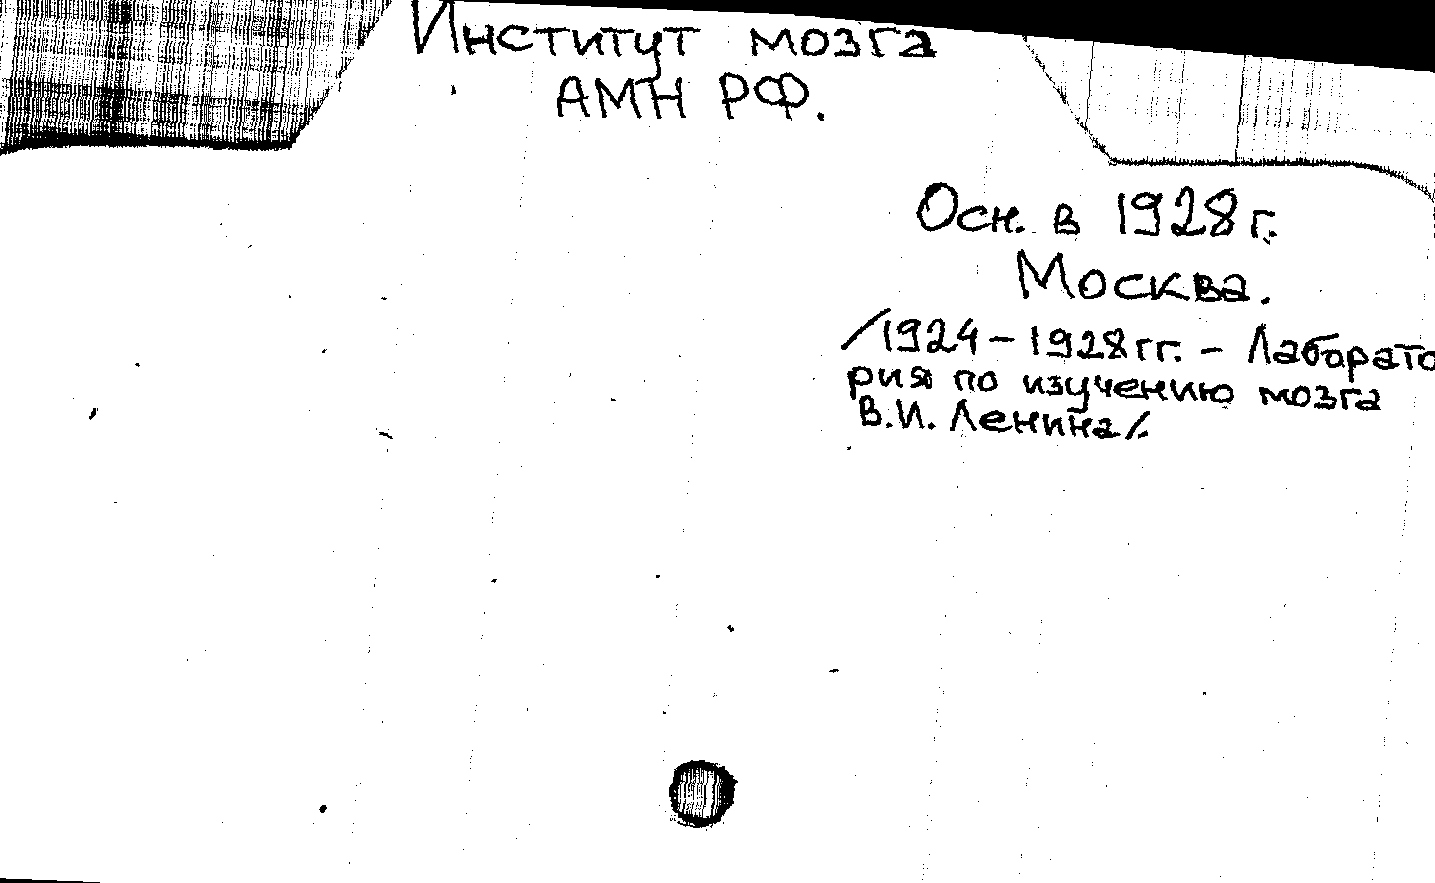 Институт мозга
АМН РФ.
Осн. в 1928 г.
Москва.
/1924-1928гг. - Лаборато
рия по изучению мозга
В.И. Ленина/.